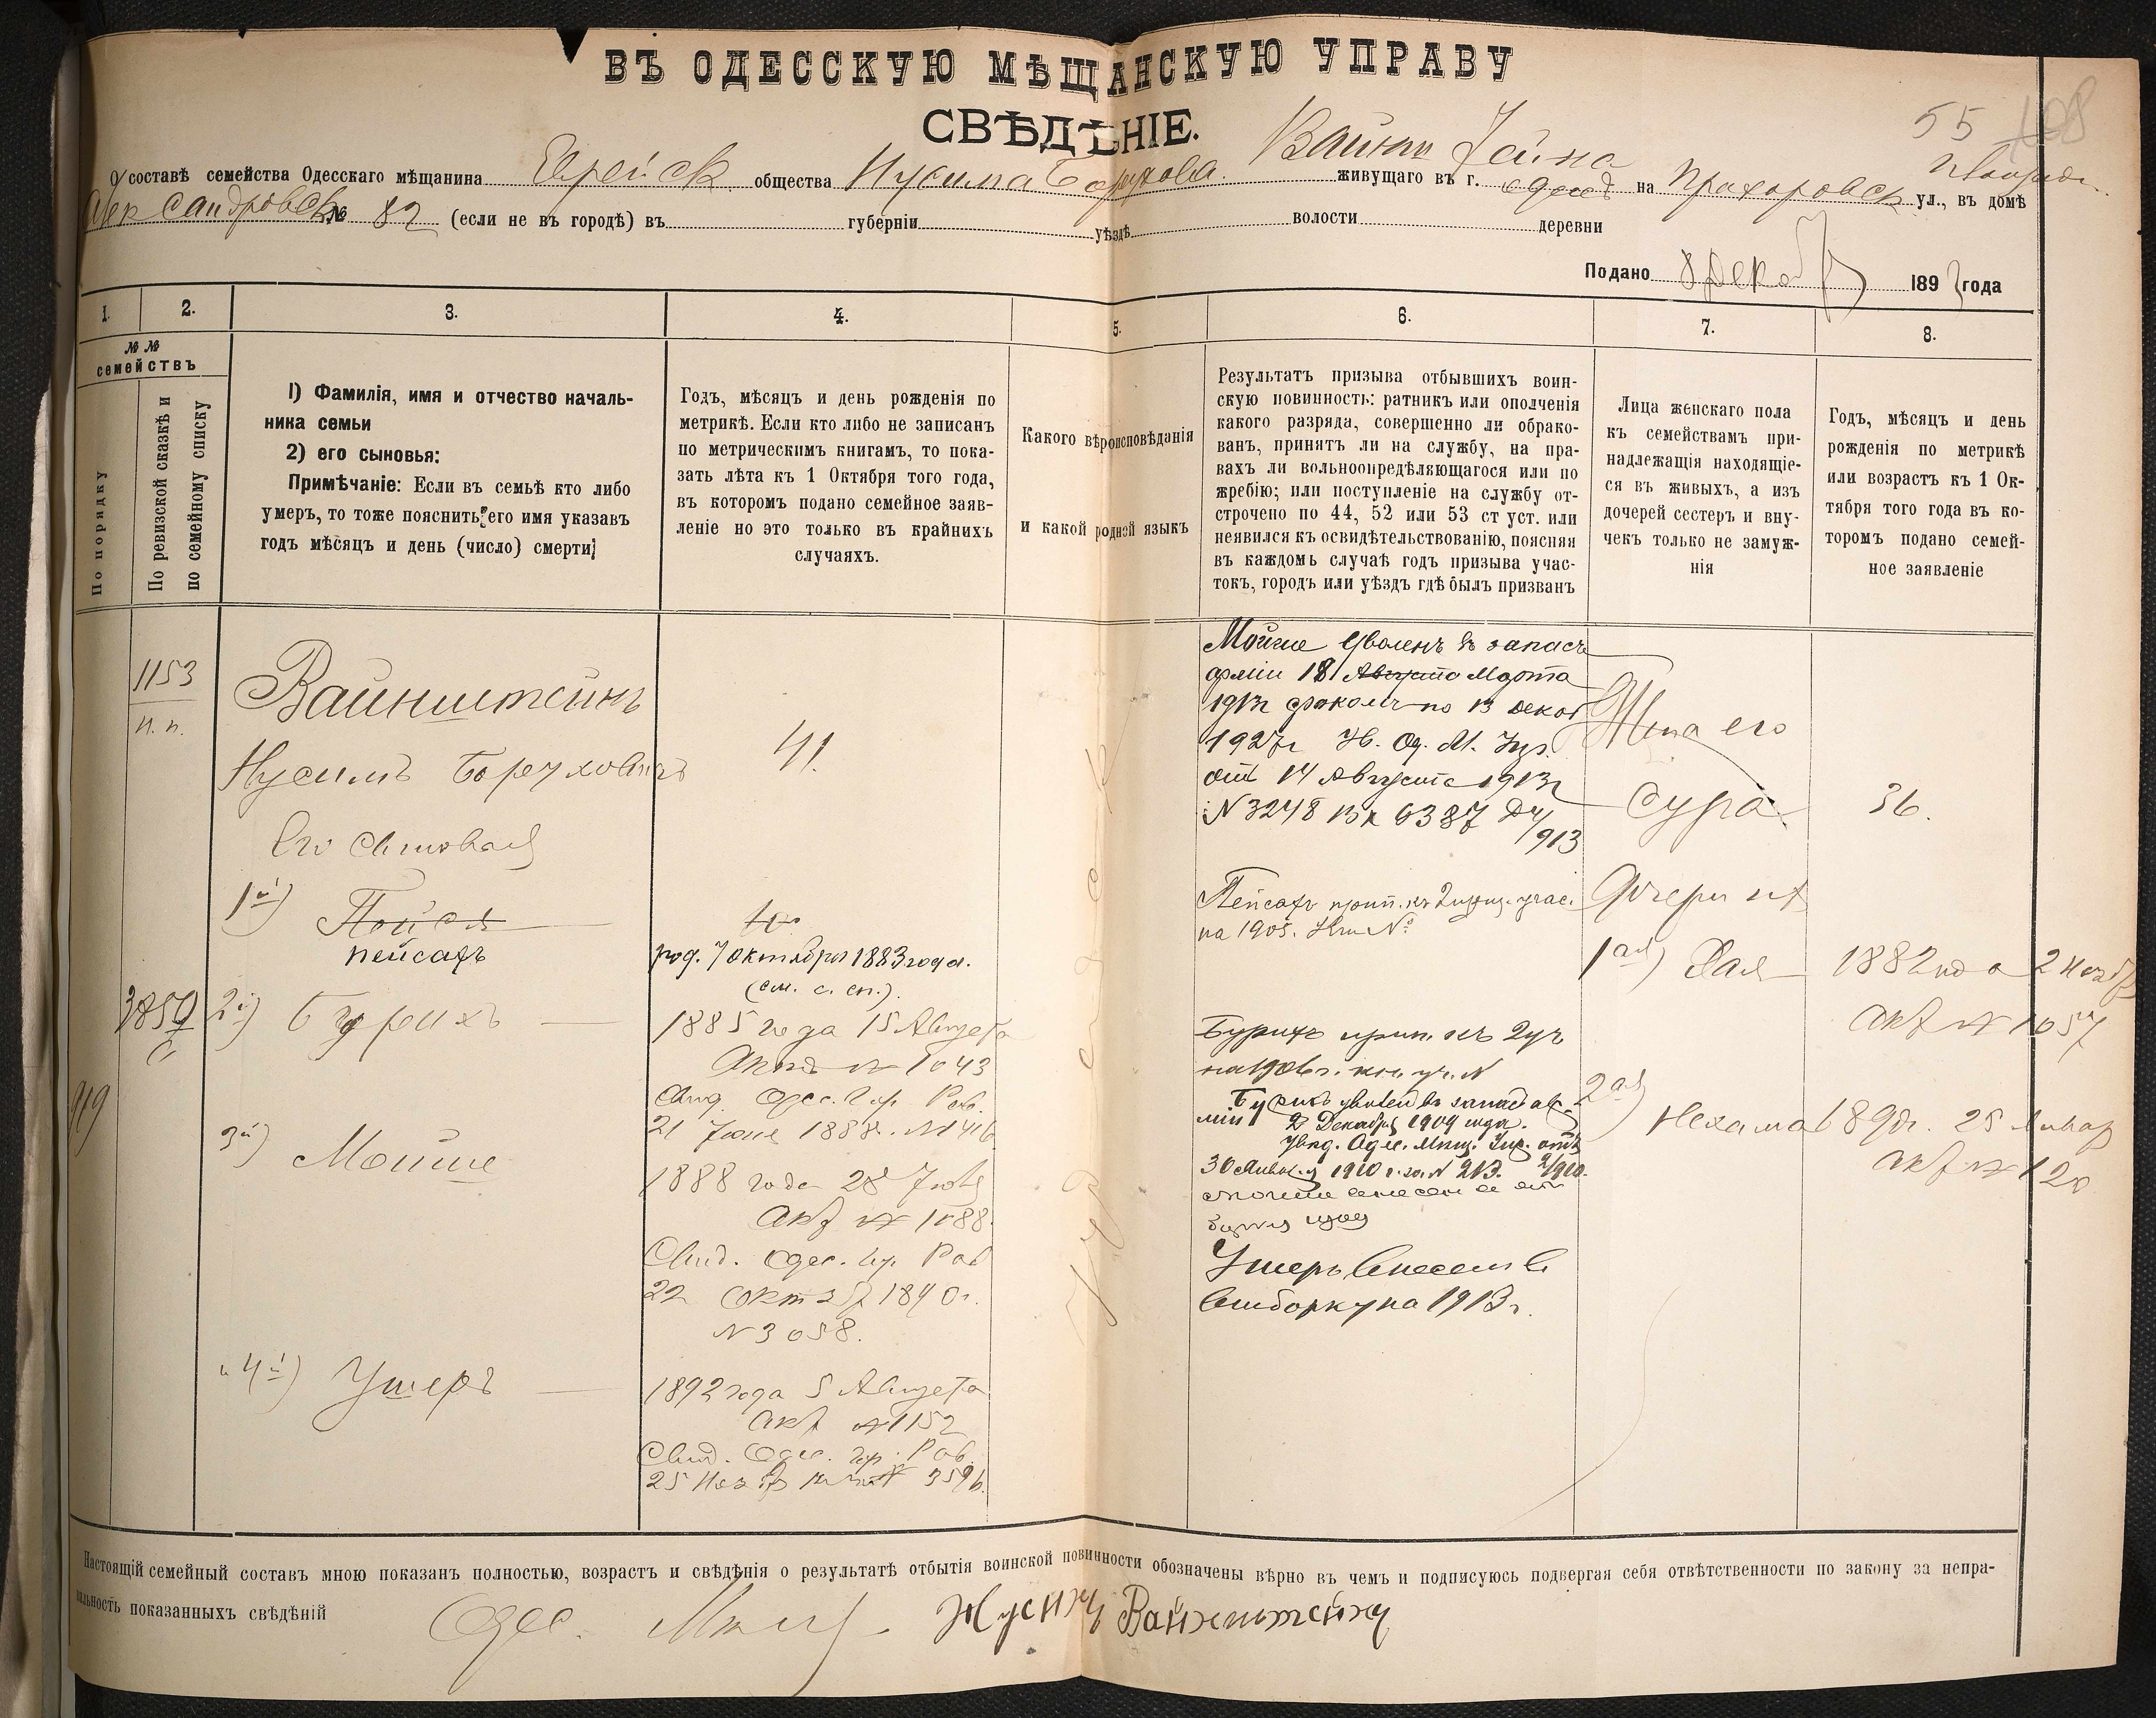 55 108
ВЪ ОДЕССКУЮ МѢЩАНСКУЮ УПРАВУ
СВѢДѢНІЕ.
О составѣ семейства Одесскаго мѣщанина Еврейск общества Нусима Борухова Вайнштейна живущаго въ г. Одес на Прохоровск ул., въ домѣ
Александровск № 82 (если не въ городѣ) въ губерніи уѣздѣ волости деревни
Подано 8 Декаб 1893 года
1. 2. 3. 4. 5. 6. 7. 8.
№ №
семействъ
По порядку
По ревизской сказкѣ и
по семейному списку
1) Фамилія, имя и отчество началь-
ника семьи
2) его сыновья:
Примѣчаніе: Если въ семьѣ кто либо
умеръ, то тоже пояснить его имя указавъ
годъ мѣсяцъ и день (число) смерти
Годъ, мѣсяцъ и день рожденія по
метрикѣ. Если кто либо не записанъ
по метрическимъ книгамъ, то пока-
зать лѣта къ 1 Октября того года,
въ которомъ подано семейное заяв-
леніе но это только въ крайнихъ
случаяхъ.
Какого вѣроисповѣданія
и какой родной языкъ
Результатъ призыва отбывшихъ воин-
скую повинность: ратникъ или ополченія
какого разряда, совершенно ли обрако-
ванъ, принятъ ли на службу, на пра-
вахъ ли вольноопредѣляющагося или по
жребію; или поступленіе на службу от-
строчено по 44, 52 или 53 ст уст. или
неявился къ освидѣтельствованію, поясняя
въ каждомъ случаѣ годъ призыва учас-
токъ, городъ или уѣздъ гдѣ былъ призванъ
Лица женскаго пола
къ семействамъ при-
надлежащія находящіе-
ся въ живыхъ, а изъ
дочерей сестеръ и вну-
чекъ только не замуж-
нія
Годъ, мѣсяцъ и день
рожденія по метрикѣ
или возрастъ къ 1 Ок-
тября того года въ ко-
торомъ подано семей-
ное заявленіе
1153
п. п.
Вайнштейнъ
Нусимъ Боруховичъ
41.
Его сыновья
1й) Пойся
пейсахъ
10
род. 7 октября 1883 года.
(см. с. сп.).
3859
2й) Бурихъ
1885 года 15 Августа
Актъ № 1043
Свид. Одес. Гор. Рав.
21 Июня 1888г. № 1416
919
3й) Мойше
1888 года 28 Июля
акт № 1088
Свид. Одес. Гор. Рав
22 Октяб 1890г.
№ 3058.
и 4й) Ушеръ
1892 года 5 Августа
акт № 1152
Свид. Одес. Гор. Рав.
25 Нояб № 3596
Мойше уволенъ въ запасъ
арміи 18 Августа Марта
1913г срокомъ по 13 декаб
1927г Ув. Од. М. Упр.
отъ 14 Августа 1913г
№ 3248 Вх 6387
913
Пейсахъ прип. къ 2 призыв. учас.
на 1905. Кн. №
Бурихъ прип. къ 2 уч
на 1906г. кн. уч. №
Бурихъ уволенъ въ запасъ ар-
міи 2 Декабря 1909 года.
Увед. Одес. Мѣщ. Упр. отъ
30 Января 1910 г. за № 213.
Мойше внесенъ въ
Ушеръ внесенъ въ
выборку на 1913г.
Жена его
Сура
36.
Дочери их
1ая) Хая
1882 года 2 Нояб
акт № 1057
2ая) Нехама
189 г. 25 Январ
акт № 120
Настоящій семейный составъ мною показанъ полностью, возрастъ и свѣдѣнія о результатѣ отбытія воинской повинности обозначены вѣрно въ чемъ и подписуюсь подвергая себя отвѣтственности по закону за непра-
вильность показанныхъ свѣдѣній Одес. Мѣщ. Нусимъ Вайнштейнъ